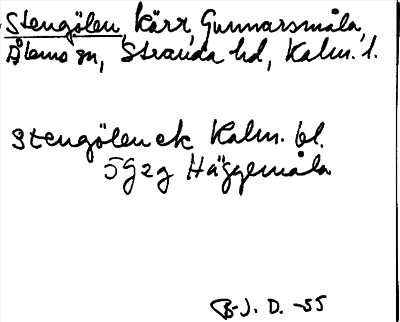 Stengölen, kärr, Gunnarsmåla,
Ålems sn, Stranda hd, Kalm. l.
Stengölen ek Kalm. bl.
5G2g Häggemåla
B-J. D. -55